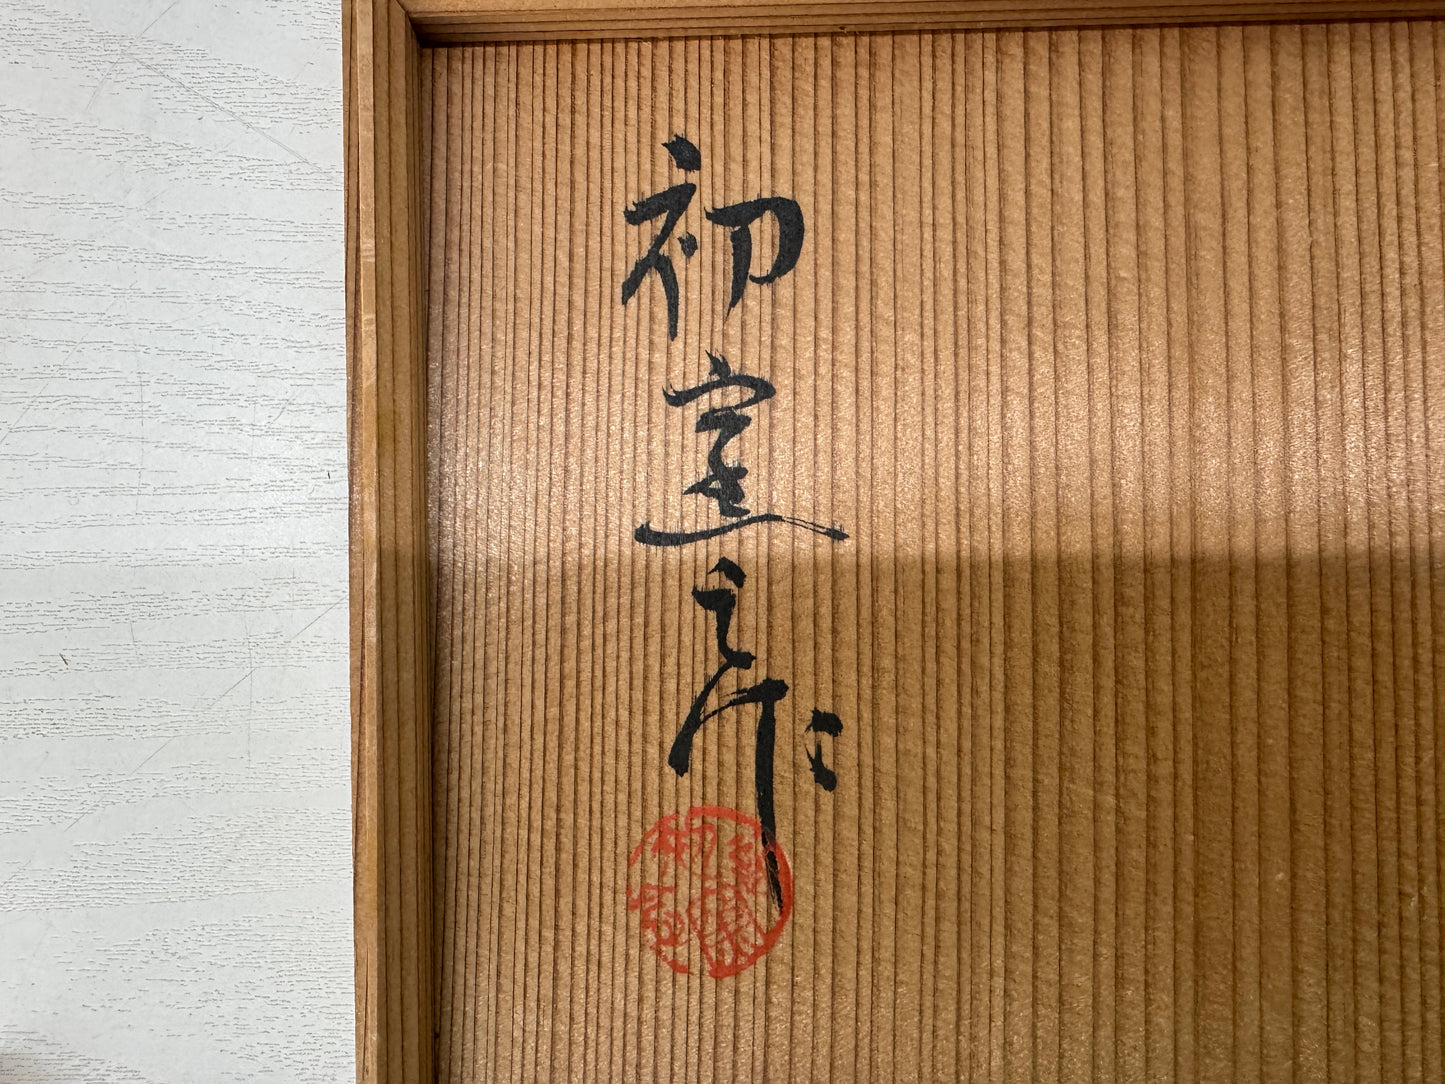 初窯之作